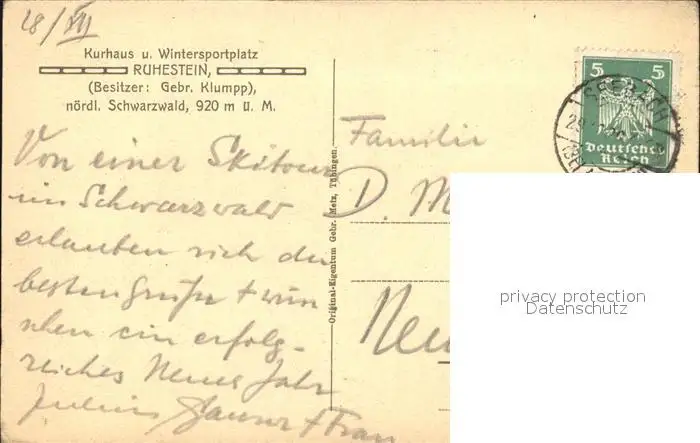 28/XII
Kurhaus u. Wintersportplatz
RUHESTEIN,
(Besitzer: Gebr. Klumpp),
nördl. Schwarzwald, 920 m ü. M.
Von einer Skitour
im Schwarzwald
erlauben sich die
besten Grüße + wün
schen ein erfolg-
reiches Neues Jahr
Julius + Frau
Original-Eigentum Gebr. Metz, Tübingen.
Familie
D. M
Neu
5 5
Deutsches
Reich
SEEBACH
privacy protection
Datenschutz